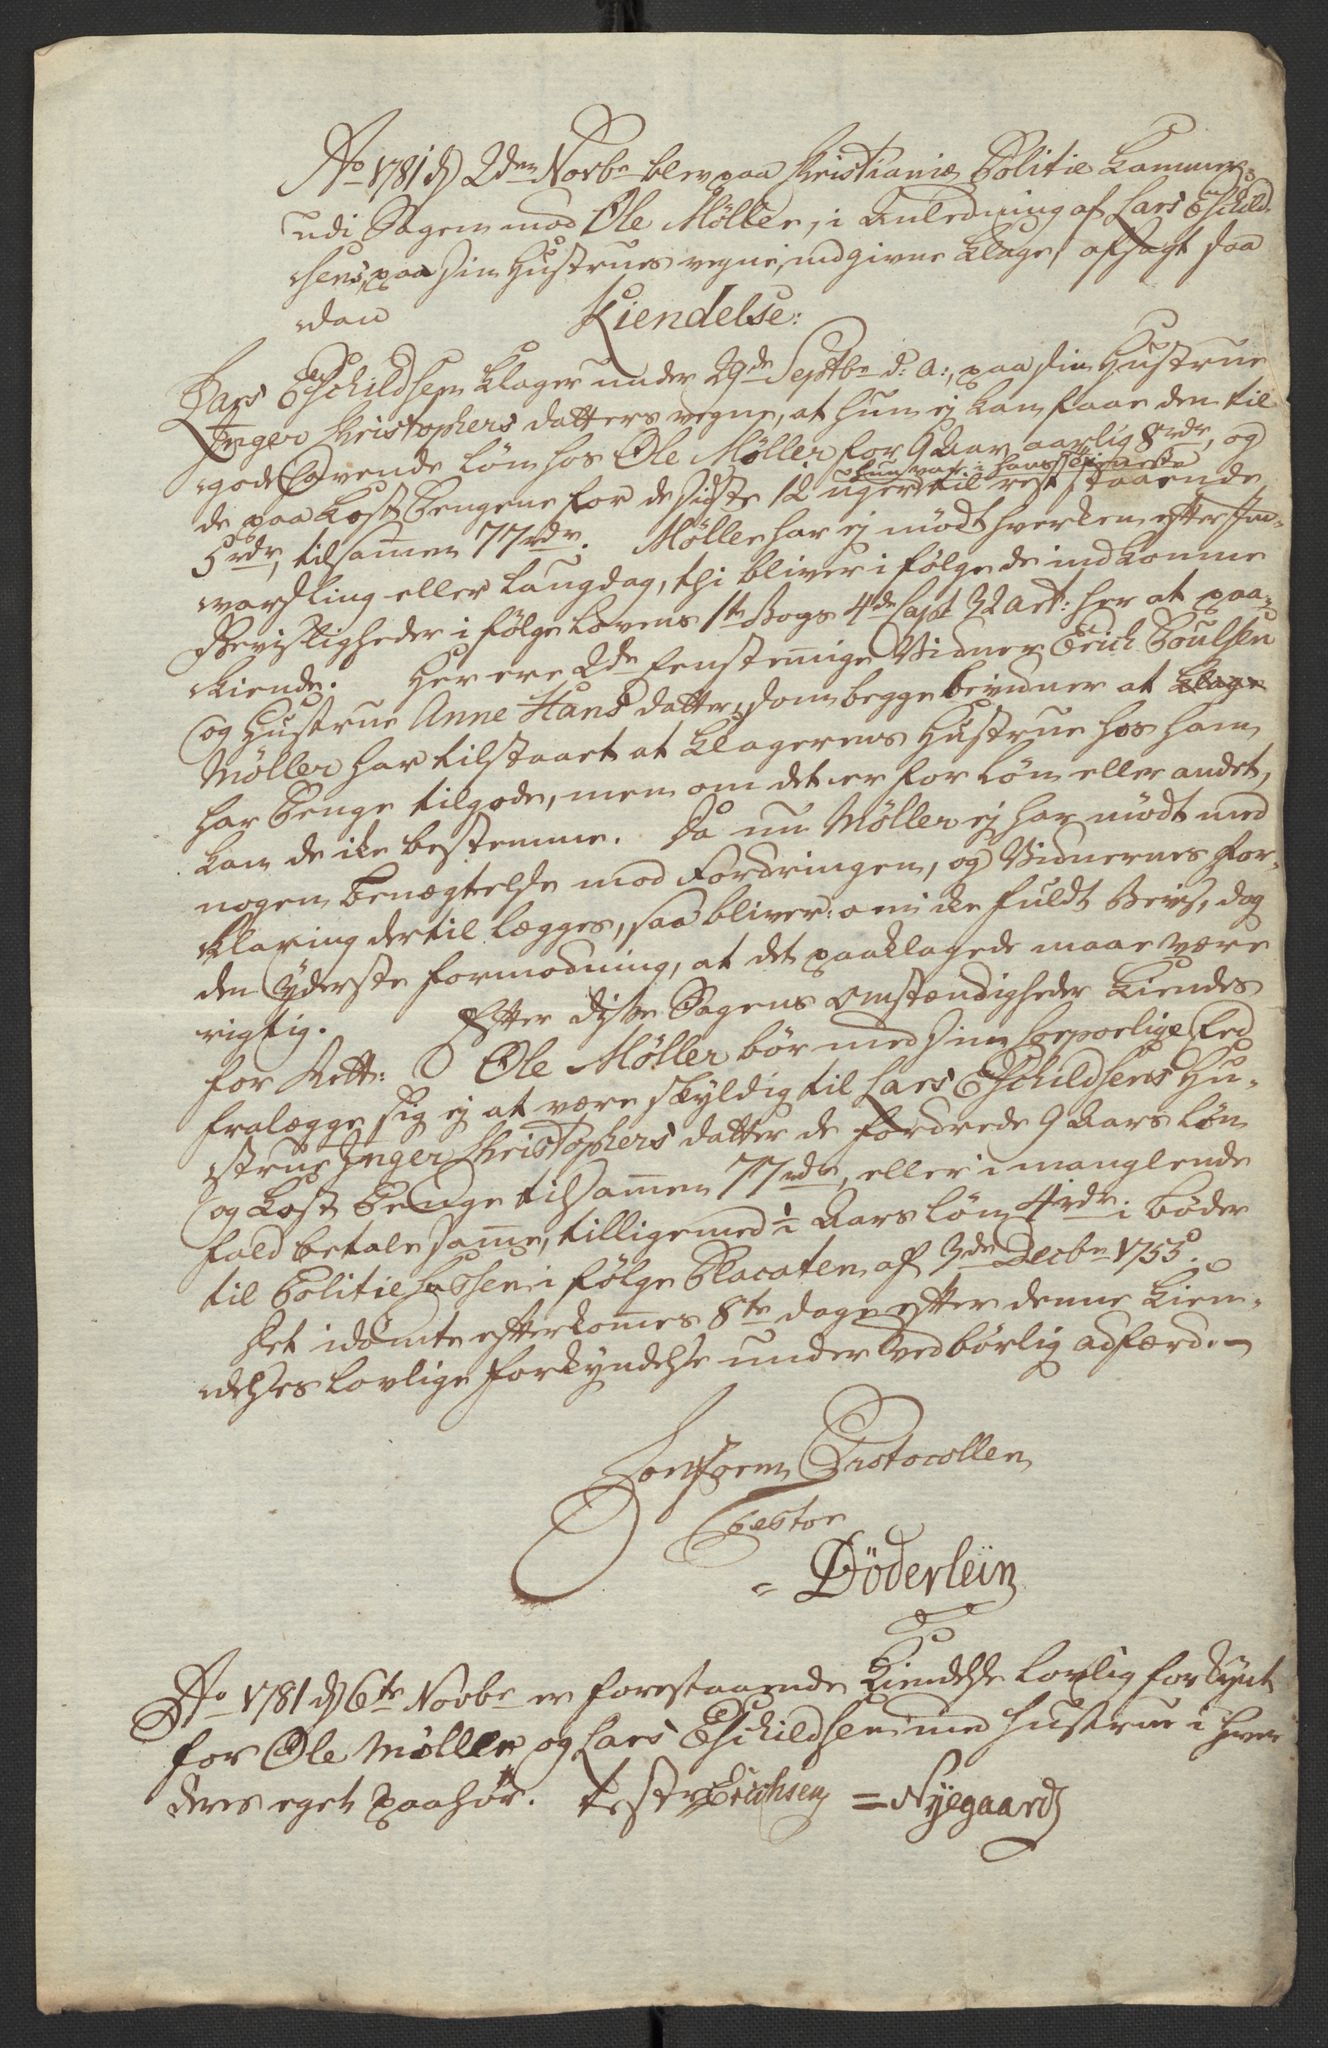 Ao 1781 d 2den Novbr blev paa Christianiæ Politie Kammer
udi Sagen mod Ole Møller, i Anledning af Lars Eschild-
sens, paa sin Hustrues vegne, indgivne Klage, afsagt saa
dan Kiendelse:
Lars Eschildsen klager under 29de Septbr d: a:, paa sin Hustrue
Inger Christophers datters vegne, at hun ej kan faae den til
gode havende Løn hos Ole Møller for 9 Aar aarlig 8 rdr, og
hun var i hanss tieneste
de paa Kost Pengene for de sidste 12 uger til rest staaende
5 rdr, tilsamen 77 rdr. Møller har ej mødt hverken efter Ind-
varsling eller Laugdag, thi bliver i følge de indkomne
Beviisligheder i følge Lovens 1te Bogs 4de Capt 32 art: her at paa-
kiende. Her ere 2de Eenstemige Vidner Erich Poulsen
og Hustrue Anne Hans datter, som begge bevidner at Klage
Møller har tilstaaet at Klagerens Hustrue hos ham
har Penge tilgode, men om det er for Løn eller andet,
kan de ike bestemme. Da nu Møller ej har mødt med
nogen Benægtelse mod Fordringen, og Vidnernes For-
klaring dertil lægges, saa bliver: om ike fuldt Beviis, dog
den yderste formodning, at det paaklagede maae være
rigtig. Efter disse Sagens Omstændigheder Kiendes
for Rett: Ole Møller bør med sin Corporlige Eed
fralægge sig ej at være skyldig til Lars Eschildsens Hu-
strue Inger Christophers datter de fordrede 9 Aars Løn
og Kost Penge tilsamen 77 rdr, eller i manglende
fald betale same, tilligemed ½ Aars Løn 4 rdr i bøder
til Politie Cassen i følge Placaten af 3de Decbr 1755.
Det idømte efterkomes 8te dage efter denne Kien-
delses lovlige Forkyndelse under vedbørlig adfærd.
Conform Protocollen
Testor
Döderlein
Ao 1781 d 6te Novbr er forestaaende Kiendelse lovlig forkynt
for Ole Møller og Lars Eschildsen med Hustrue i hver
deres eget paahør. test Erichsen = Nyegaard